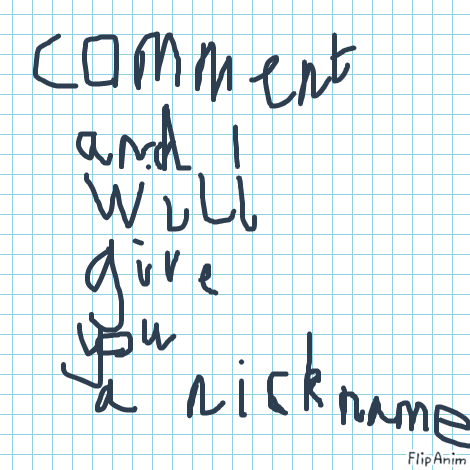 comment
and I
will
give
you
a nickname
FlipAnim